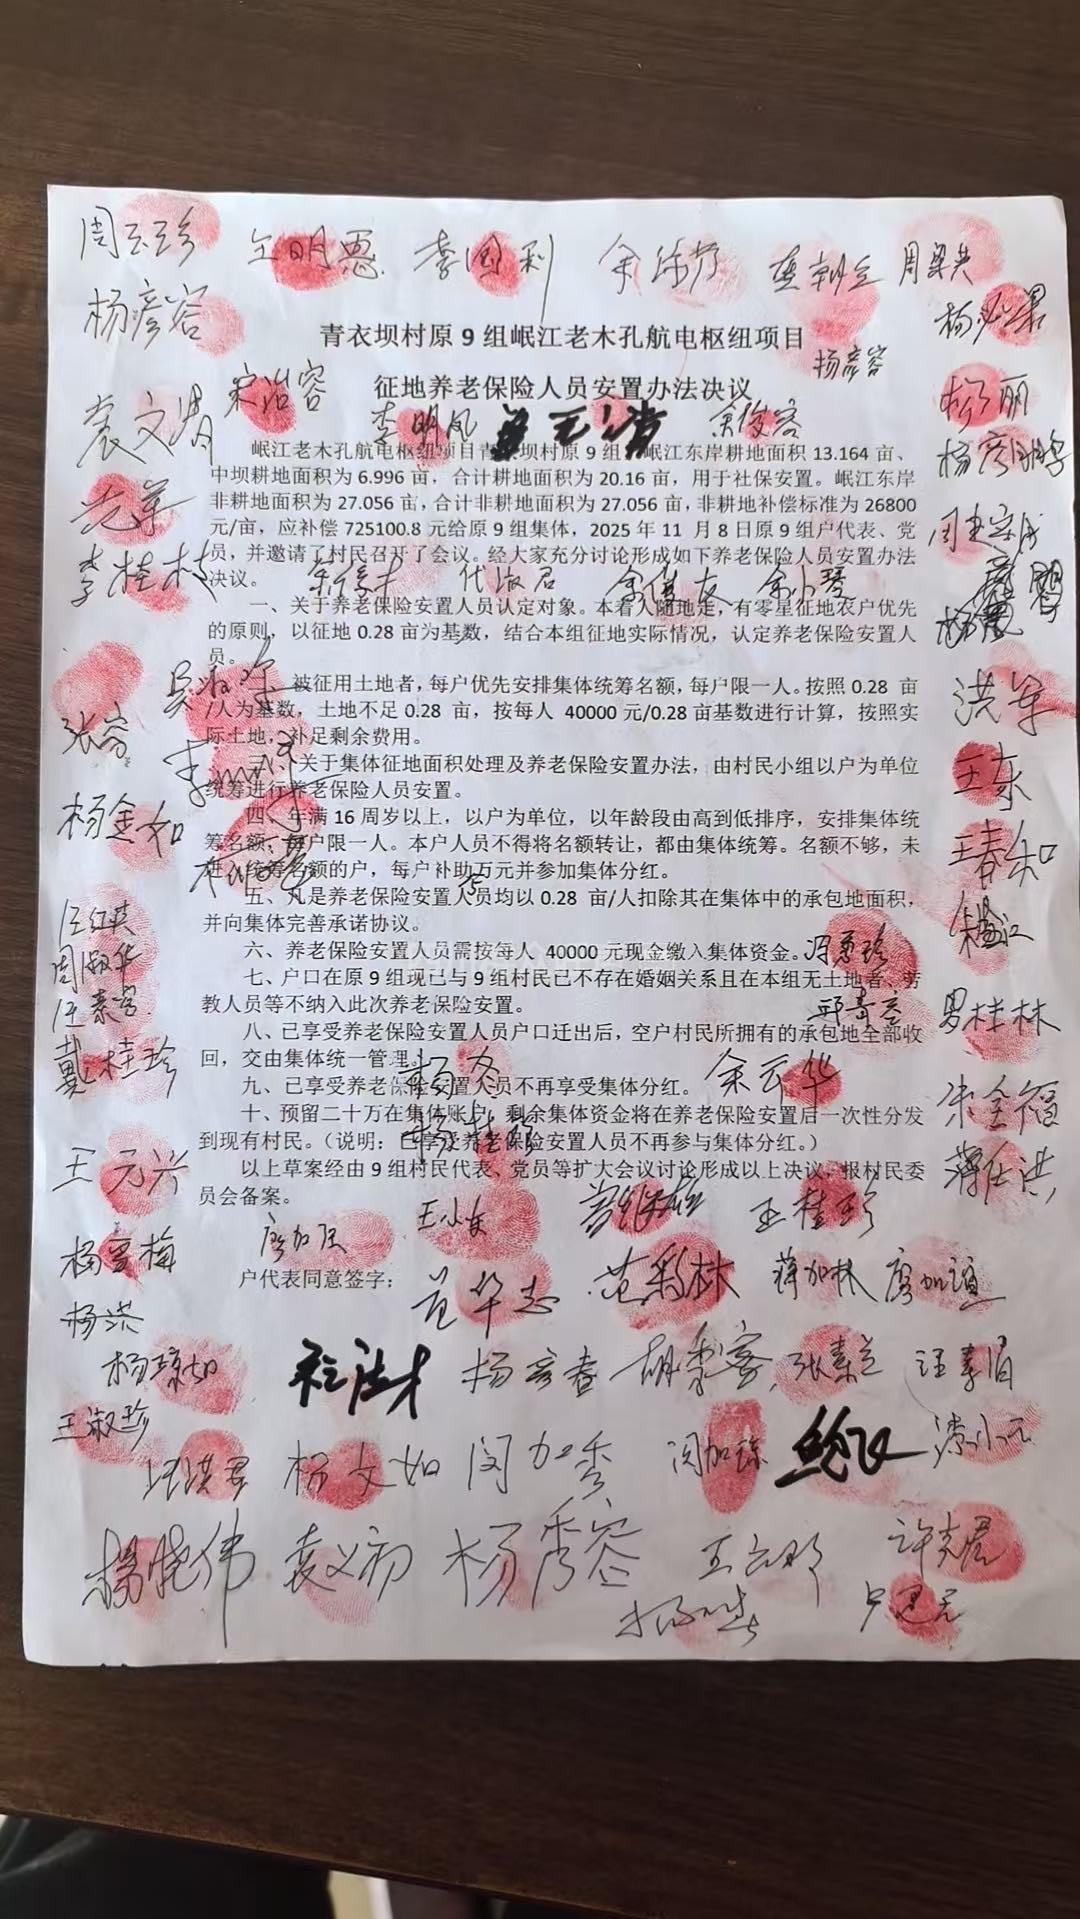 周玉珍 王明恩 李国利 周梁芬
杨彦容 杨必果
青衣坝村原 9 组岷江老木孔航电枢纽项目
杨彦容
征地养老保险人员安置办法决议
宋治容 杨丽
袁文清 李明凤 余俊容
岷江老木孔航电枢纽项目青衣坝村原 9 组，岷江东岸耕地面积 13.164 亩、
中坝耕地面积为 6.996 亩，合计耕地面积为 20.16 亩，用于社保安置。岷江东岸
非耕地面积为 27.056 亩，合计非耕地面积为 27.056 亩，非耕地补偿标准为 26800
元/亩，应补偿 725100.8 元给原 9 组集体，2025 年 11 月 8 日原 9 组户代表、党
员，并邀请了村民召开了会议。经大家充分讨论形成如下养老保险人员安置办法
决议。
李桂枝 代淑君 余小琴
一、关于养老保险安置人员认定对象。本着人随地走，有零星征地农户优先
的原则，以征地 0.28 亩为基数，结合本组征地实际情况，认定养老保险安置人
员。
被征用土地者，每户优先安排集体统筹名额，每户限一人。按照 0.28 亩
/人为基数，土地不足 0.28 亩，按每人 40000 元/0.28 亩基数进行计算，按照实
际土地，补足剩余费用。
张容 洪军
关于集体征地面积处理及养老保险安置办法，由村民小组以户为单位
统筹进行养老保险人员安置。
王东
四、年满 16 周岁以上，以户为单位，以年龄段由高到低排序，安排集体统
筹名额，每户限一人。本户人员不得将名额转让，都由集体统筹。名额不够，未
进入统筹名额的户，每户补助万元并参加集体分红。
杨金如 王春和
五、凡是养老保险安置人员均以 0.28 亩/人扣除其在集体中的承包地面积，
并向集体完善承诺协议。
汪红英
六、养老保险安置人员需按每人 40000 元现金缴入集体资金。
周淑华 冯惠珍
七、户口在原 9 组现已与 9 组村民已不存在婚姻关系且在本组无土地者、劳
教人员等不纳入此次养老保险安置。
汪素容 男桂林
八、已享受养老保险安置人员户口迁出后，空户村民所拥有的承包地全部收
回，交由集体统一管理。
戴桂珍 杨冬 余云华
九、已享受养老保险安置人员不再享受集体分红。
朱金福
十、预留二十万在集体账户，剩余集体资金将在养老保险安置后一次性分发
到现有村民。（说明：已享受养老保险安置人员不再参与集体分红。）
以上草案经由 9 组村民代表、党员等扩大会议讨论形成以上决议，报村民委
员会备案。
王元兴 蒋仕洪
王小女 王桂珍
廖加强
户代表同意签字：
范华志 范彩林 蒋加林 廖加谊
杨洪
杨琼如 杨彦春 胡黎容 张素兰 汪素眉
王淑珍
汪洪君 杨文如 闵加秀 闵加琼
杨晓伟 袁义初 杨秀容 许炎君